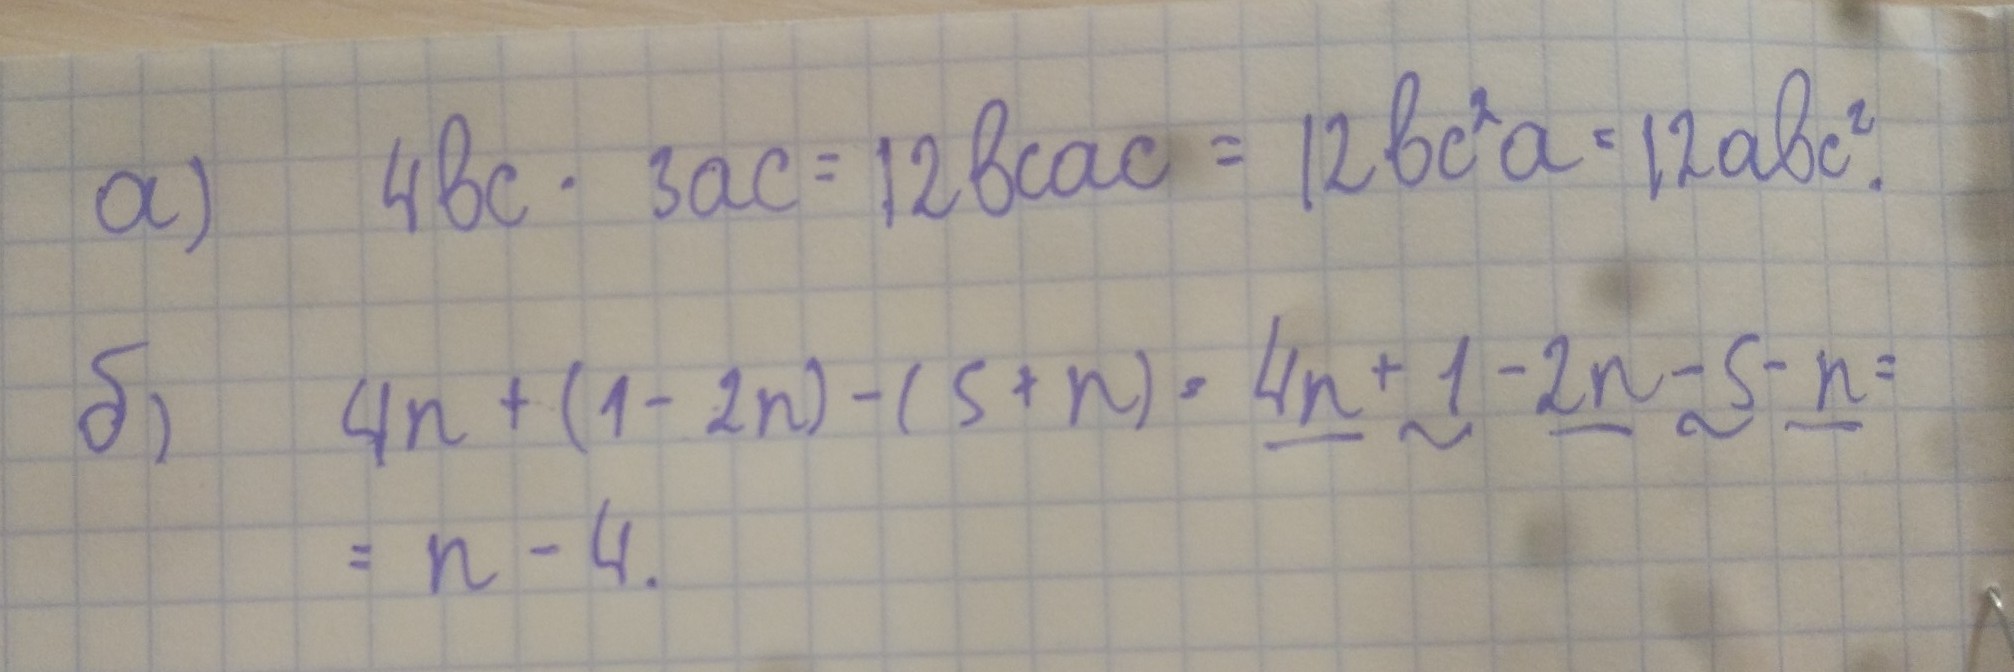 а) 4bc · 3ac = 12bcac = 12bc²a = 12abc².
б) 4n + (1 - 2n) - (5 + n) = 4n + 1 - 2n - 5 - n =
= n - 4.